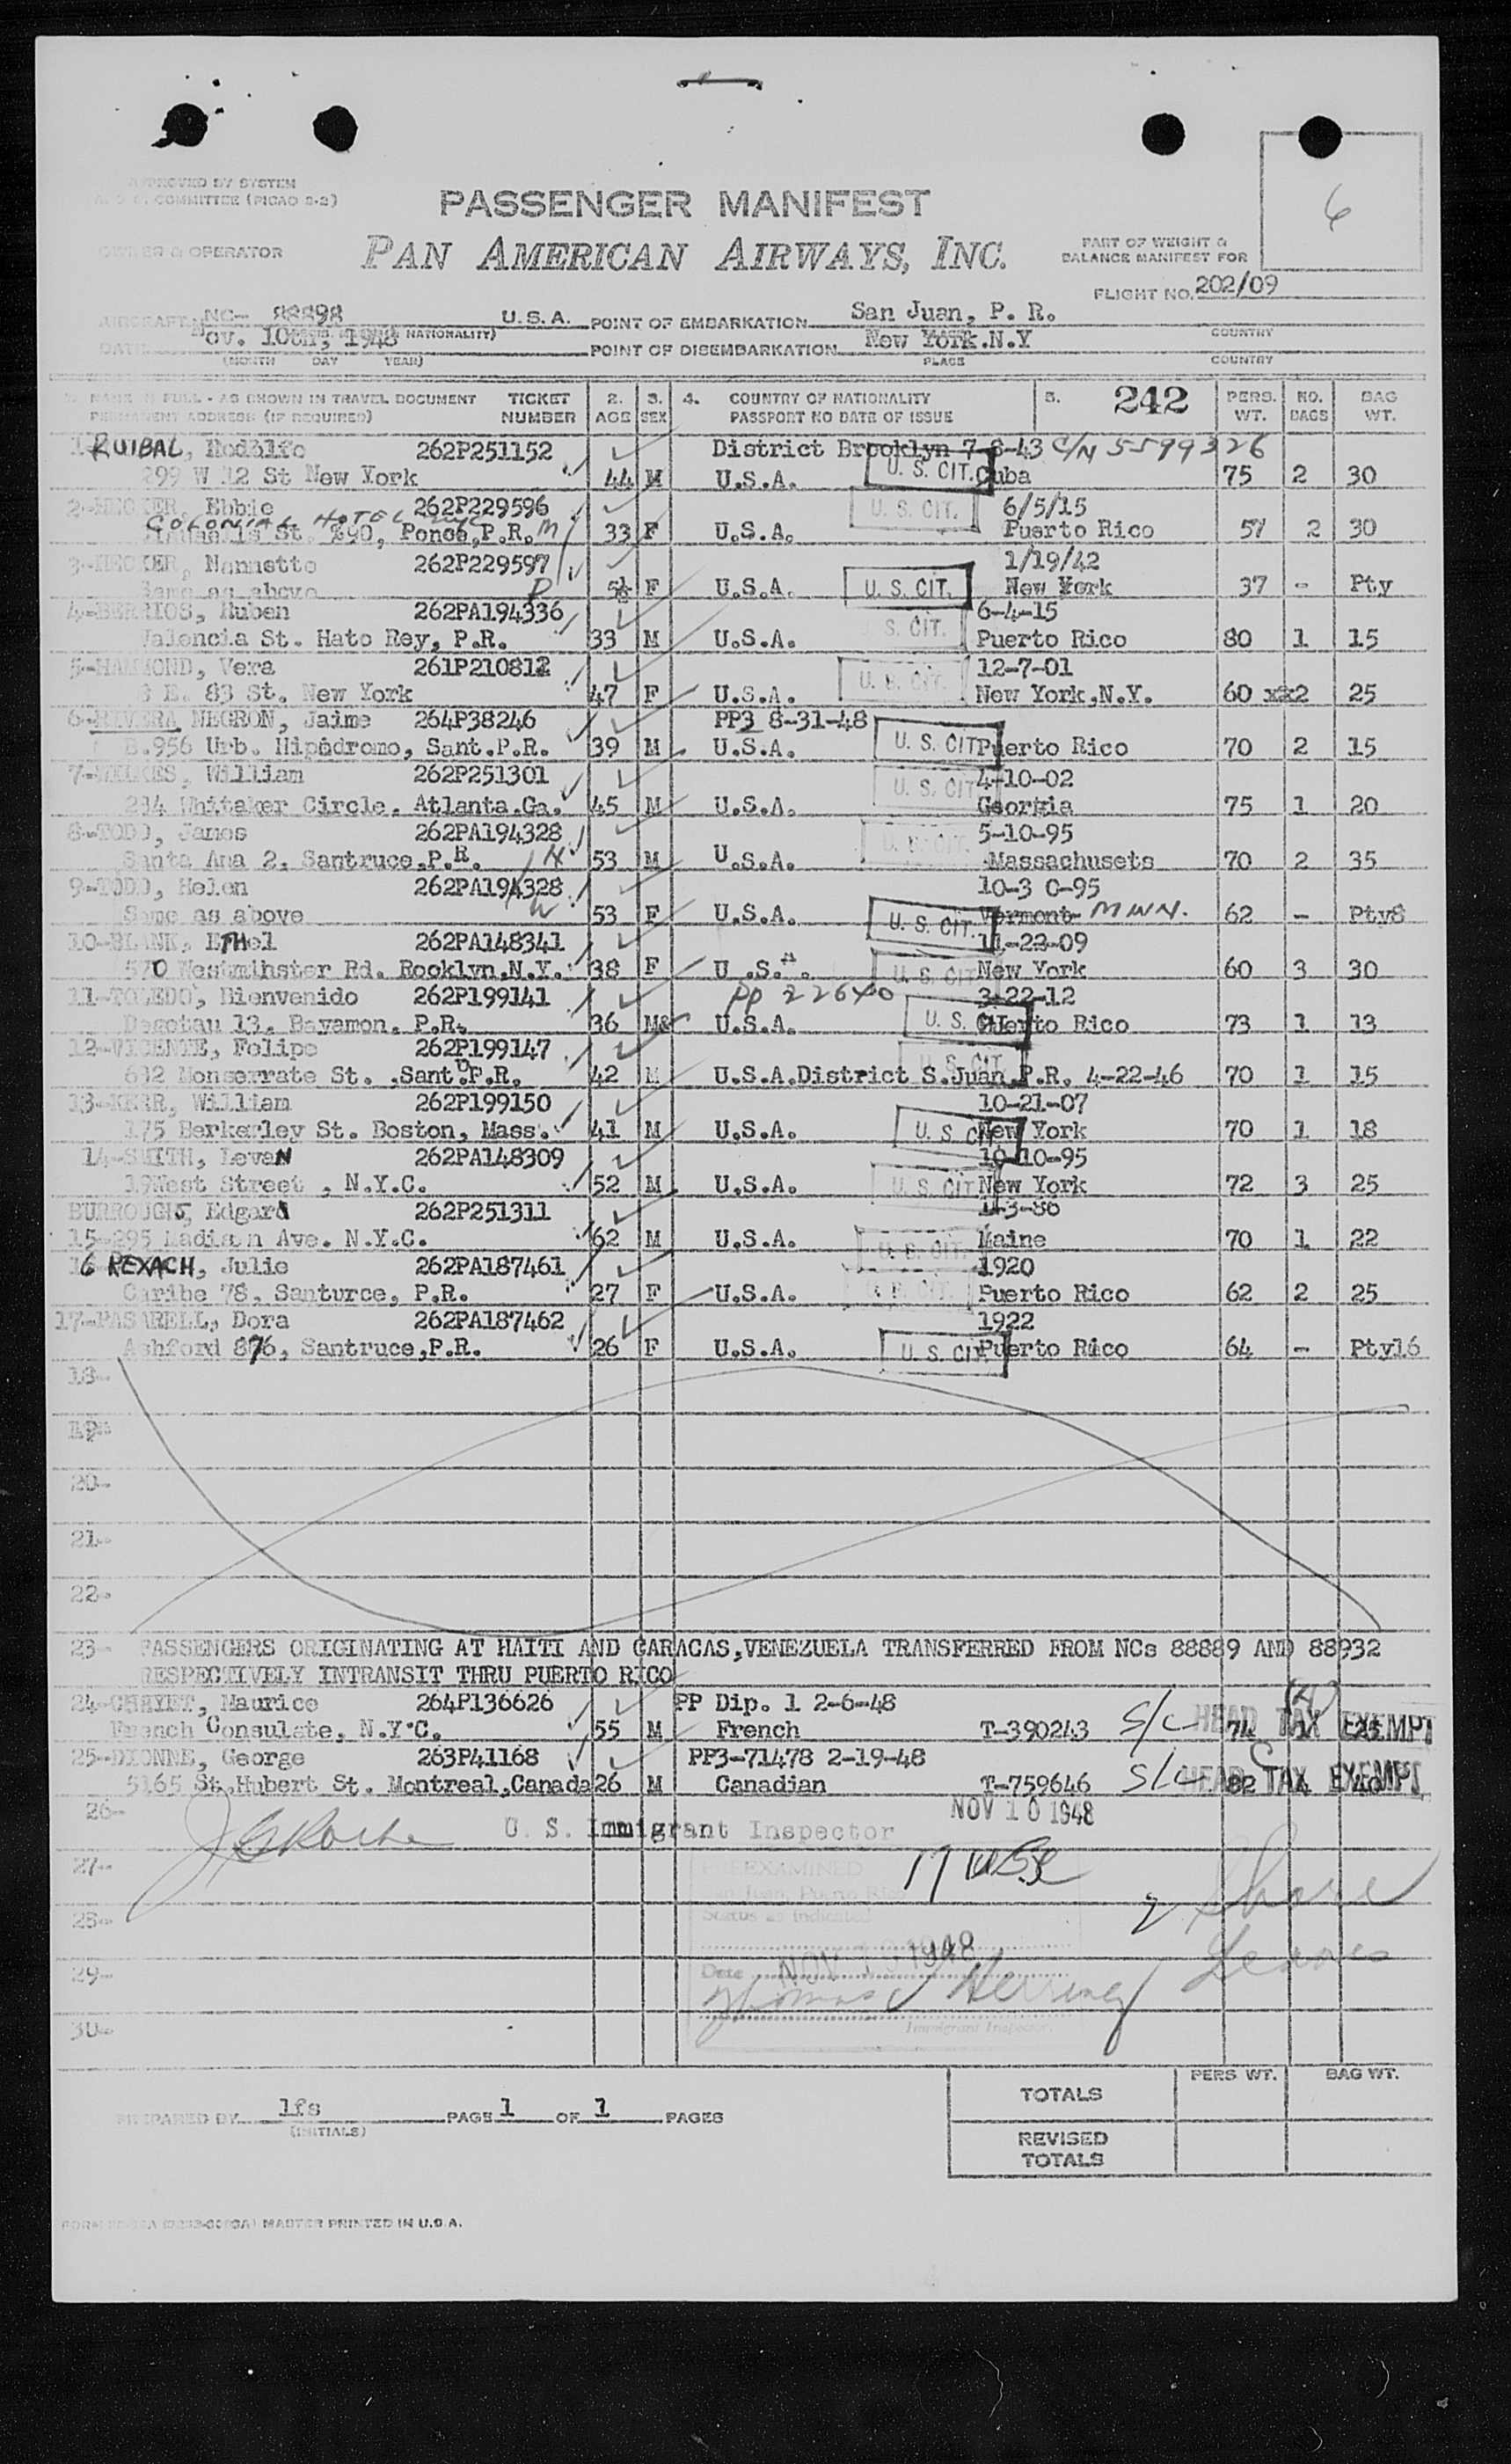 APPROVED BY SYSTEM
COMMITTEE (PICAO 2-2)
6
PASSENGER MANIFEST
OWNER & OPERATOR
PAN AMERICAN AIRWAYS, INC.
PART OF WEIGHT &
BALANCE MANIFEST FOR
FLIGHT NO. 202/09
AIRCRAFT NC- 88898 U.S.A. POINT OF EMBARKATION San Juan, P. R.
NATIONALITY) COUNTRY
DATE Nov. 10th, 1948 POINT OF DISEMBARKATION New York.N.Y
(MONTH DAY YEAR) PLACE COUNTRY
NAME IN FULL - AS SHOWN IN TRAVEL DOCUMENT TICKET 2. 3. 4. COUNTRY OF NATIONALITY 5. 242 PERS. NO. BAG
PERMANENT ADDRESS (IF REQUIRED) NUMBER AGE SEX PASSPORT NO DATE OF ISSUE WT. BAGS WT.
RUIBAL, Rodolfo 262P251152 District Brooklyn 7-8-43 C/N 5599326
299 W 12 St New York 44 M U.S.A. U. S. CIT. Cuba 75 2 30
2-HECKER, Ebbie 262P229596 U. S. CIT. 6/5/15
COLONIAL HOTEL NYC
St. 290, Ponce,P.R. M 33 F U.S.A. Puerto Rico 57 2 30
3-HECKER, Nannette 262P229597 1/19/42
Same as above D 5½ F U.S.A. U. S. CIT. New York 37 - Pty
4-BERRIOS, Ruben 262PA194336 6-4-15
Valencia St. Hato Rey, P.R. 33 M U.S.A. S. CIT. Puerto Rico 80 1 15
5-HAMMOND, Vera 261P210812 12-7-01
E. 83 St. New York 47 F U.S.A. U. S. CIT. New York,N.Y. 60 xx2 25
6-RIVERA NEGRON, Jaime 264P38246 PP3 8-31-48
B.956 Urb. Hipodromo, Sant.P.R. 39 M U.S.A. U. S. CIT Puerto Rico 70 2 15
7-WILKES, William 262P251301 4-10-02
234 Whitaker Circle. Atlanta.Ga. 45 M U.S.A. U. S. CIT Georgia 75 1 20
8-TODD, James 262PA194328 5-10-95
Santa Ana 2, Santruce,P.R. H 53 M U.S.A. U. S. CIT. Massachusets 70 2 35
9-TODD, Helen 262PA194328 10-3 0-95
Same as above W 53 F U.S.A. U. S. CIT. Vermont MINN. 62 - Pty8
10-BLANK, ETHel 262PA148341 11-22-09
570 Westminster Rd. Rooklyn.N.Y. 38 F U .S.A. U. S. CIT. New York 60 3 30
11-TOLEDO, Bienvenido 262P199141 PP 22640 3-22-12
Degetau 13. Bayamon. P.R. 36 M& U.S.A. U. S. CIT Puerto Rico 73 1 13
12-VICENTE, Felipe 262P199147
632 Monserrate St. ,Sant.P.R. 42 M U.S.A.District S.Juan,P.R. 4-22-46 U. S. CIT 70 1 15
13-KERR, William 262P199150 10-21-07
175 Berkerley St. Boston, Mass. 41 M U.S.A. U. S. CIT New York 70 1 18
14-SMITH, LeveN 262PA148309 10-10-95
19West Street , N.Y.C. 52 M U.S.A. U. S. CIT New York 72 3 25
BURROUGHS, Edgard 262P251311 1-3-86
15-295 Madison Ave. N.Y.C. 62 M U.S.A. U. S. CIT. Maine 70 1 22
16 REXACH, Julie 262PA187461 1920
Caribe 78, Santurce, P.R. 27 F U.S.A. U. S. CIT. Puerto Rico 62 2 25
17-PASARELL, Dora 262PA187462 1922
Ashford 876, Santruce,P.R. 26 F U.S.A. U. S. CIT. Puerto Rico 64 - Pty16
18-
19-
20-
21-
22-
23- PASSENGERS ORIGINATING AT HAITI AND CARACAS,VENEZUELA TRANSFERRED FROM NCs 88889 AND 88932
RESPECTIVELY INTRANSIT THRU PUERTO RICO
24-CHAYET, Maurice 264P136626 PP Dip. 1 2-6-48 (A)
French Consulate, N.Y.C. 55 M French T-390243 S/C HEAD TAX EXEMPT 74 1 23
25-DIONNE, George 263P41168 PP3-71478 2-19-48 C
5165 St.Hubert St. Montreal,Canada 26 M Canadian T-759646 S/C HEAD TAX EXEMPT 82 4 40
26- NOV 10 1948
J G Roche U. S. Immigrant Inspector
27- PREEXAMINED 17 USC
San Juan, Puerto Rico
28- Status as indicated 2 Shore
Leaves
29- Date NOV 10 1948
Thomas J Herring
30- Immigrant Inspector
PREPARED BY lfs PAGE 1 OF 1 PAGES
(INITIALS)
PERS WT. BAG WT.
TOTALS
REVISED
TOTALS
MASTER PRINTED IN U.S.A.